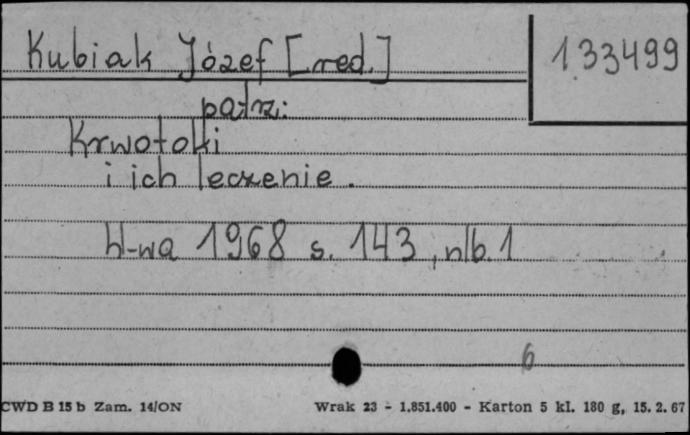 Kubiak Józef [red.]
133499
patrz:
Krwotoki
i ich leczenie.
W-wa 1968 s. 143, nlb. 1
6
CWD B 15 b Zam. 14/ON
Wrak 23 - 1.851.400 - Karton 5 kl. 180 g, 15. 2. 67